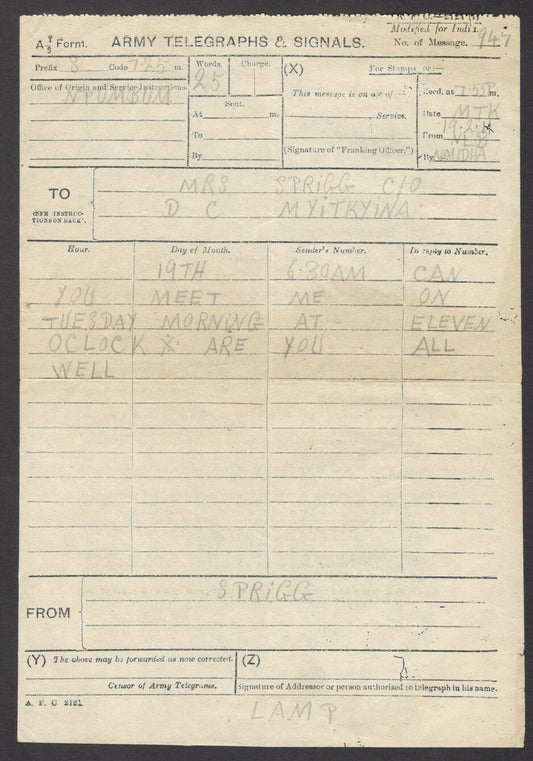 A. F. C.—2121 (S)
Modified for India.
A T/3 Form. ARMY TELEGRAPHS & SIGNALS. No. of Message. 947
Prefix 8 Code 7.25 m. Words. Charge. (X) For Stamps
25
Office of Origin and Service Instructions. This message is on a/c of Recd. at 7.55P m.
NPUMBUM Sent. Date MTK
At m. Service. 19.2
To From
By (Signature of "Franking Officer.") By
TO MRS SPRIGG C/O
(SEE INSTRUCTIONS ON BACK). D C MYITKYINA
Hour. Day of Month. Sender's Number. In reply to Number.
19TH 6.30AM CAN
YOU MEET ME ON
TUESDAY MORNING AT ELEVEN
OCLOCK X ARE YOU ALL
WELL
SPRIGG
FROM
(Y) The above may be forwarded as now corrected. (Z)
Censor of Army Telegrams. Signature of Addressor or person authorised to telegraph in his name.
A. F. C 2121
LAMP